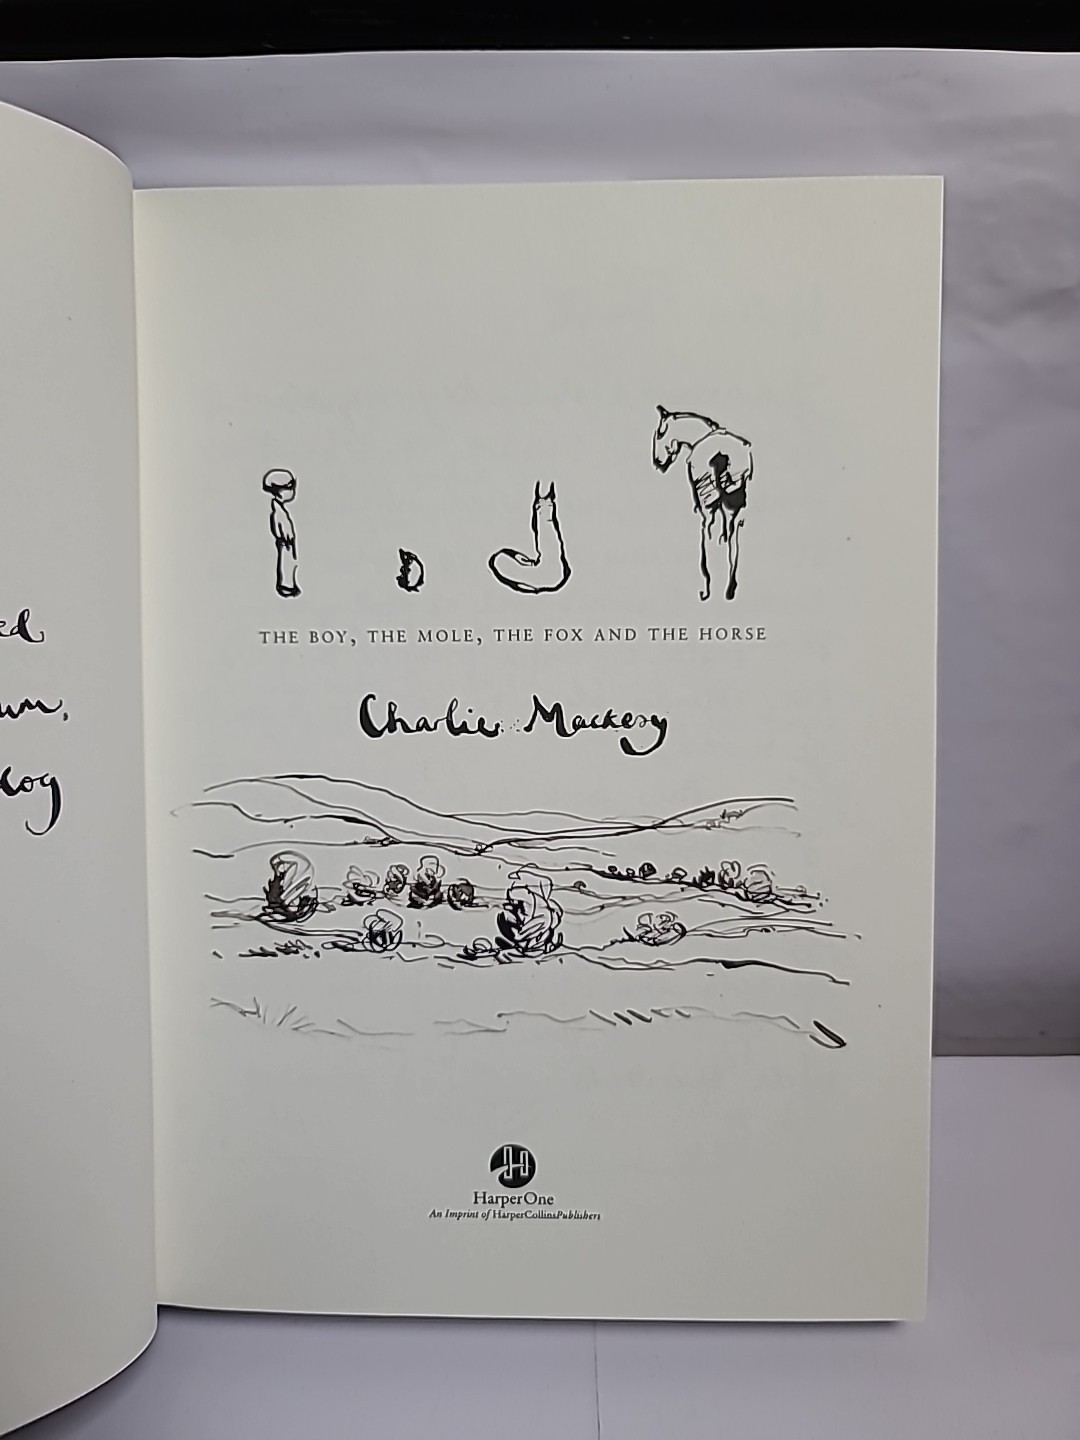 THE BOY, THE MOLE, THE FOX AND THE HORSE
Charlie Mackesy
HarperOne
An Imprint of HarperCollinsPublishers